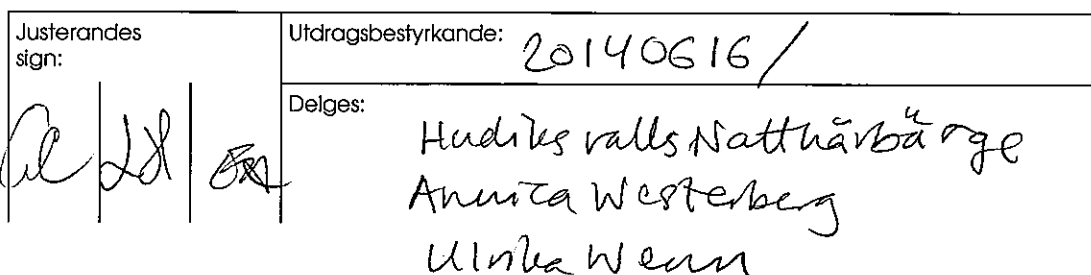 Justerandes
sign:
Utdragsbestyrkande: 20140616/
Delges:
Hudiksvalls Natthärbärge
Annica Westerberg
Ulrika Wenn